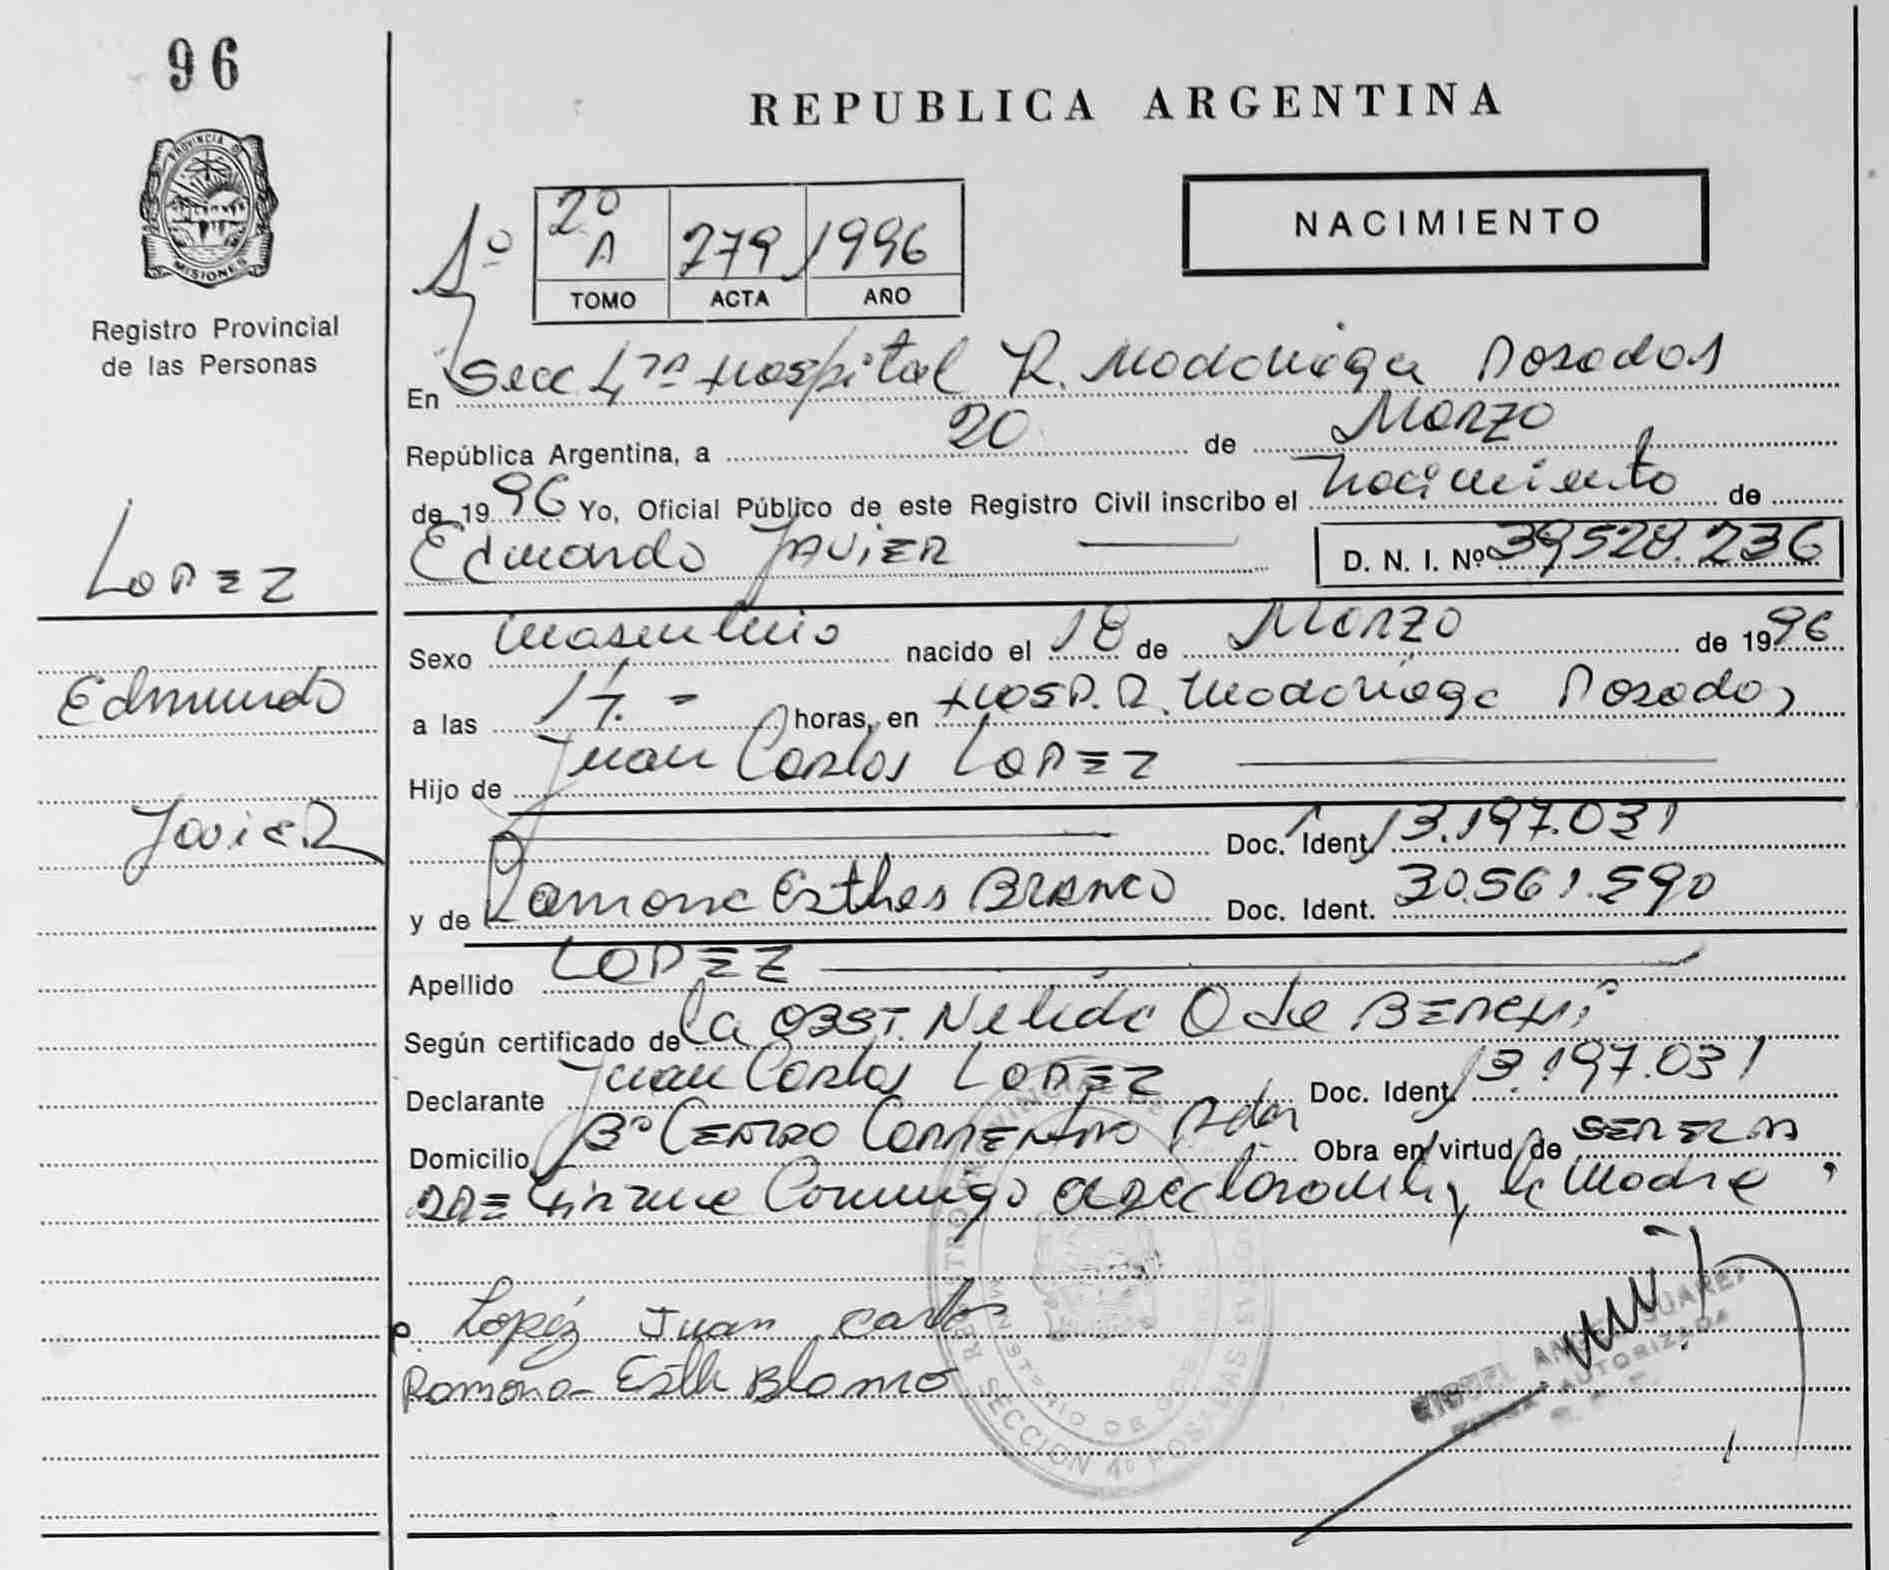 96
PROVINCIA DE
MISIONES
Registro Provincial
de las Personas
LOPEZ
Edmundo
Javier
REPUBLICA ARGENTINA
NACIMIENTO
1º
2º A 279 1996
TOMO ACTA AÑO
En Secc 4ta Hospital R. Madariaga Posadas
República Argentina, a 20 de Marzo
de 1996 Yo, Oficial Público de este Registro Civil inscribo el Nacimiento de
Edmundo JAVIER D. N. I. Nº 39528.236
Sexo masculino nacido el 18 de Marzo de 1996
a las 17.- horas, en HOSP. R. Madariaga Posadas
Hijo de Juan Carlos LOPEZ
Doc. Ident. 13.197.031
y de Ramona Esther BLANCO Doc. Ident. 30.561.590
Apellido LOPEZ
Según certificado de la OBST. Nelida O de
Declarante Juan Carlos LOPEZ Doc. Ident. 13.197.031
Domicilio Bº CENTRO CORRENTINO Pdas Obra en virtud de SER EL
PADRE firma Conmigo el declarante y la Madre
P. Lopéz Juan Carlos
Ramona Esth Blanco
MIGUEL ANGEL SUAREZ
FIRMA AUTORIZADA
REGISTRO PROVINCIAL DE LAS PERSONAS
MINISTERIO DE GOB
SECCION 4º POSADAS